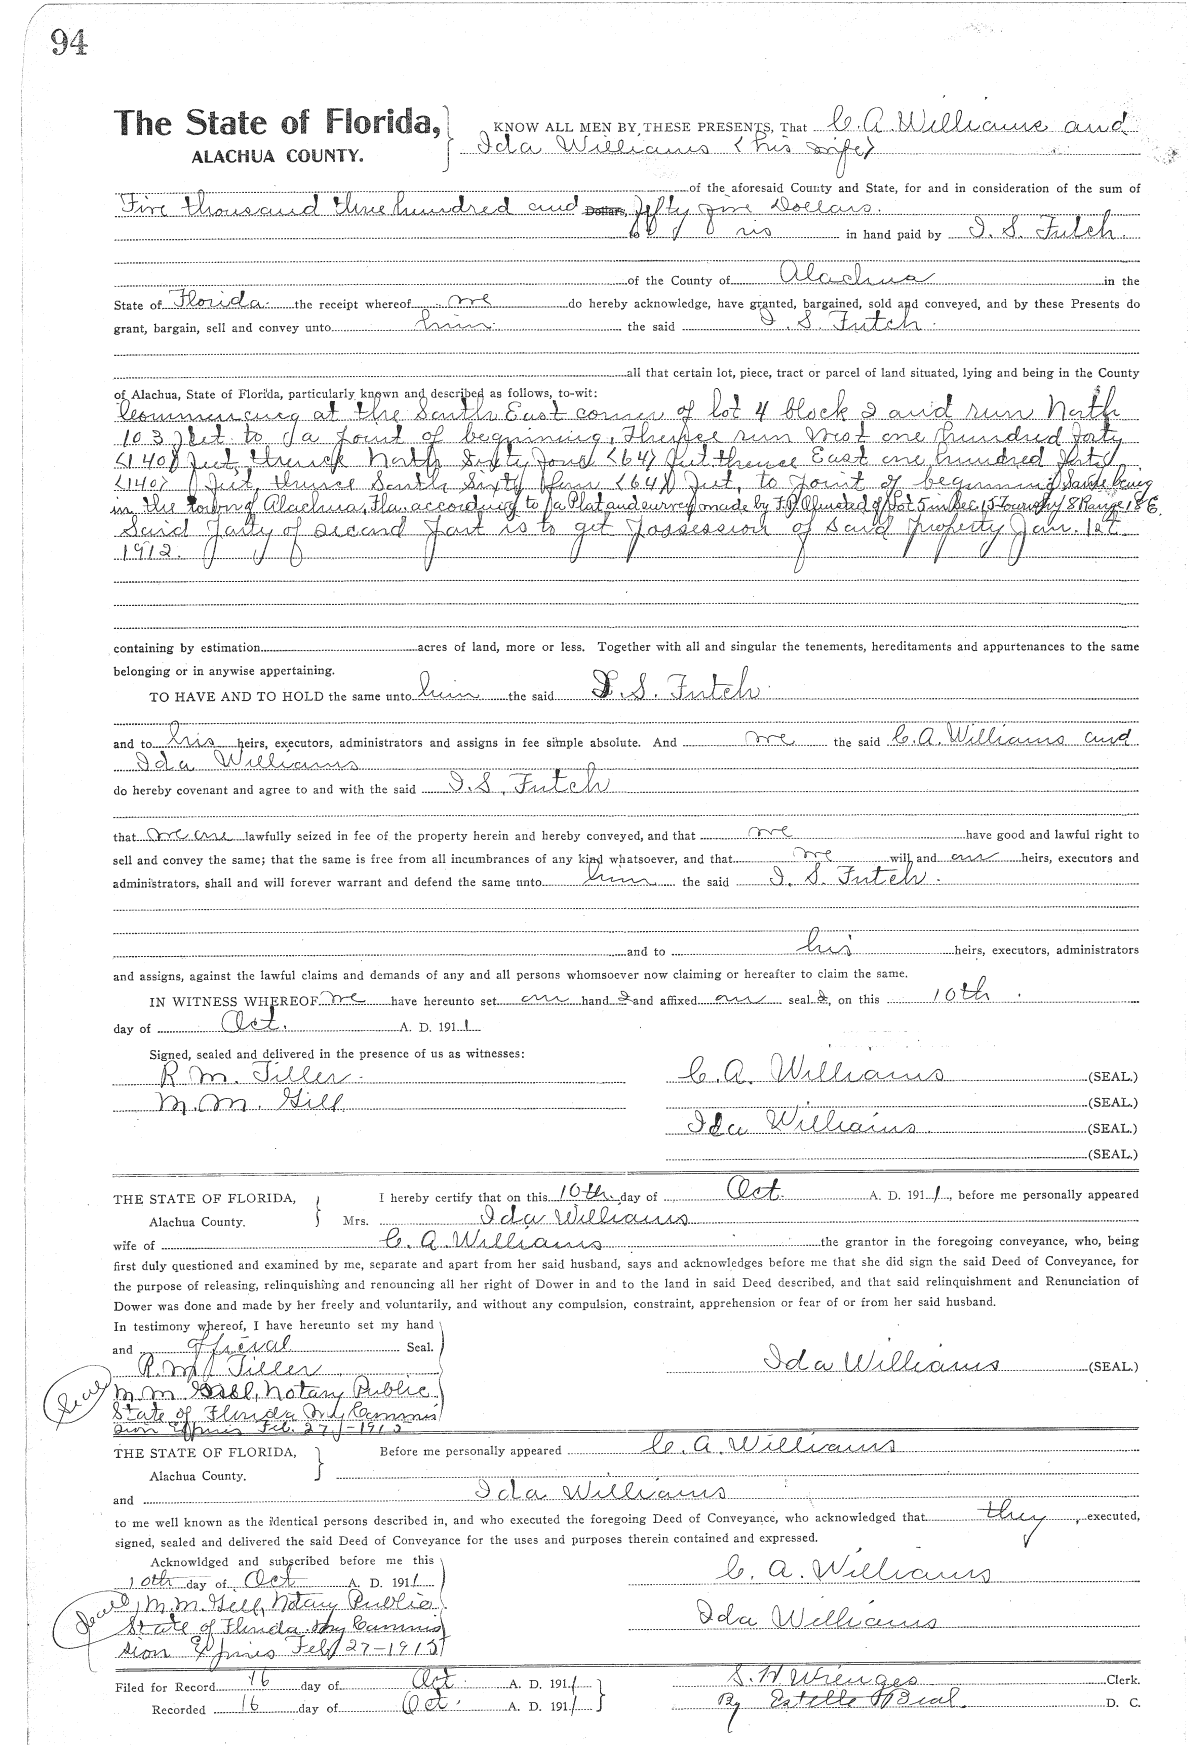 94
The State of Florida,
ALACHUA COUNTY.
KNOW ALL MEN BY THESE PRESENTS, That C. A. Williams and
Ida Williams (his wife)
of the aforesaid County and State, for and in consideration of the sum of
Five thousand three hundred and Dollars, fifty five Dollars.
to us in hand paid by I. S. Futch.
of the County of Alachua in the
State of Florida. the receipt whereof we do hereby acknowledge, have granted, bargained, sold and conveyed, and by these Presents do
grant, bargain, sell and convey unto him the said I. S. Futch.
all that certain lot, piece, tract or parcel of land situated, lying and being in the County
of Alachua, State of Florida, particularly known and described as follows, to-wit:
Commencing at the South East corner of lot 4 block 2 and run North
103 feet to a point of beginning, Thence run West one hundred forty
(140) feet, thence North Sixty four (64) feet thence East one hundred forty
(140) feet, thence South Sixty four (64) feet, to point of beginning Same being
in the town of Alachua, Fla. according to a Plat and survey made by of Lot 5 in Sec 15 Township 8 Range 18 E.
Said party of second part is to get possession of said property Jan. 1st
1912.
containing by estimation acres of land, more or less. Together with all and singular the tenements, hereditaments and appurtenances to the same
belonging or in anywise appertaining.
TO HAVE AND TO HOLD the same unto him the said I. S. Futch
and to his heirs, executors, administrators and assigns in fee simple absolute. And we the said C. A. Williams and
Ida Williams
do hereby covenant and agree to and with the said I. S. Futch
that we are lawfully seized in fee of the property herein and hereby conveyed, and that we have good and lawful right to
sell and convey the same; that the same is free from all incumbrances of any kind whatsoever, and that we will and our heirs, executors and
administrators, shall and will forever warrant and defend the same unto him the said I. S. Futch.
and to his heirs, executors, administrators
and assigns, against the lawful claims and demands of any and all persons whomsoever now claiming or hereafter to claim the same.
IN WITNESS WHEREOF we have hereunto set our hand s and affixed our seal s, on this 10th
day of Oct. A. D. 1911
Signed, sealed and delivered in the presence of us as witnesses:
R. M. Tiller. C. A. Williams (SEAL.)
M. M. Gill (SEAL.)
Ida Williams (SEAL.)
(SEAL.)
THE STATE OF FLORIDA, I hereby certify that on this 10th day of Oct. A. D. 1911, before me personally appeared
Alachua County. Mrs. Ida Williams
wife of C. A. Williams the grantor in the foregoing conveyance, who, being
first duly questioned and examined by me, separate and apart from her said husband, says and acknowledges before me that she did sign the said Deed of Conveyance, for
the purpose of releasing, relinquishing and renouncing all her right of Dower in and to the land in said Deed described, and that said relinquishment and Renunciation of
Dower was done and made by her freely and voluntarily, and without any compulsion, constraint, apprehension or fear of or from her said husband.
In testimony whereof, I have hereunto set my hand
and official Seal.
R. M. Tiller Ida Williams (SEAL.)
Seal M. M. Gill, Notary Public
State of Florida My Commis
sion Expires Feb. 27-1915
THE STATE OF FLORIDA, Before me personally appeared C. A. Williams
Alachua County.
and Ida Williams
to me well known as the identical persons described in, and who executed the foregoing Deed of Conveyance, who acknowledged that they, executed,
signed, sealed and delivered the said Deed of Conveyance for the uses and purposes therein contained and expressed.
Acknowldged and subscribed before me this
10th day of Oct A. D. 1911 C. A. Williams
Seal, M. M. Gill, Notary Public
State of Florida My Commis Ida Williams
sion Expires Feb 27-1915
Filed for Record 16 day of Oct A. D. 1911 S. H. Wienges Clerk.
Recorded 16 day of Oct. A. D. 1911 By Estelle Beal. D. C.